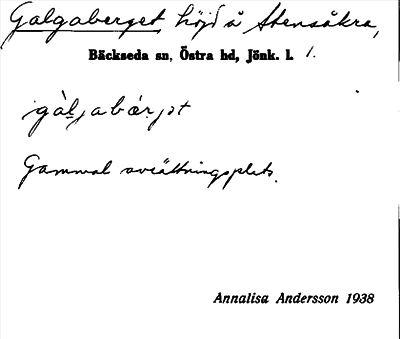 Galgaberget höjd å Stensåkra,
Bäckseda sn, Östra hd, Jönk. l. 1.
Gammal avrättningsplats.
Annalisa Andersson 1938